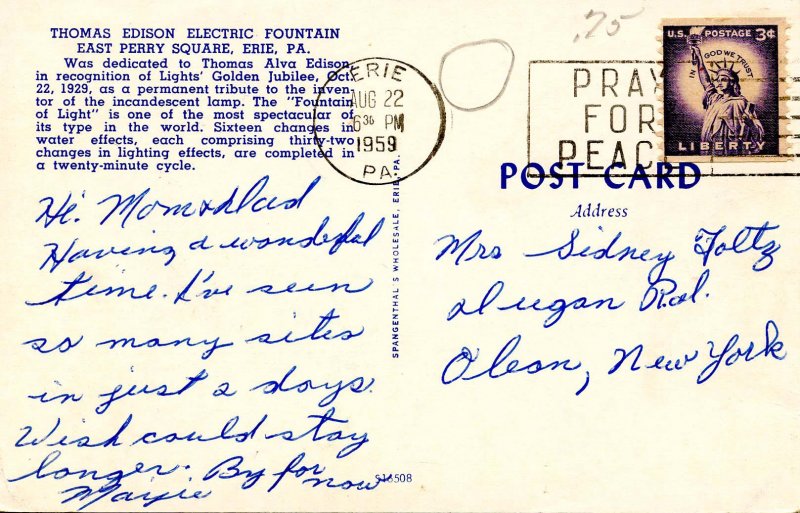 THOMAS EDISON ELECTRIC FOUNTAIN
EAST PERRY SQUARE, ERIE, PA.
Was dedicated to Thomas Alva Edison,
in recognition of Lights' Golden Jubilee, Oct.
22, 1929, as a permanent tribute to the inven-
tor of the incandescent lamp. The "Fountain
of Light" is one of the most spectacular of
its type in the world. Sixteen changes in
water effects, each comprising thirty-two
changes in lighting effects, are completed in
a twenty-minute cycle.
Hi. Mom & Dad
Having a wonderful
time. I've seen
so many sites
in just 2 days.
Wish could stay
longer. By for
now
SPANGENTHAL'S WHOLESALE, ERIE, PA.
S18508
.75
ERIE
AUG 22
6 30 PM
1959
PA.
PRAY
FOR
PEACE
U.S. POSTAGE 3¢
IN GOD WE TRUST
LIBERTY
POST CARD
Address
Mrs Sidney Foltz
Dugan Rd.
Olean, New York